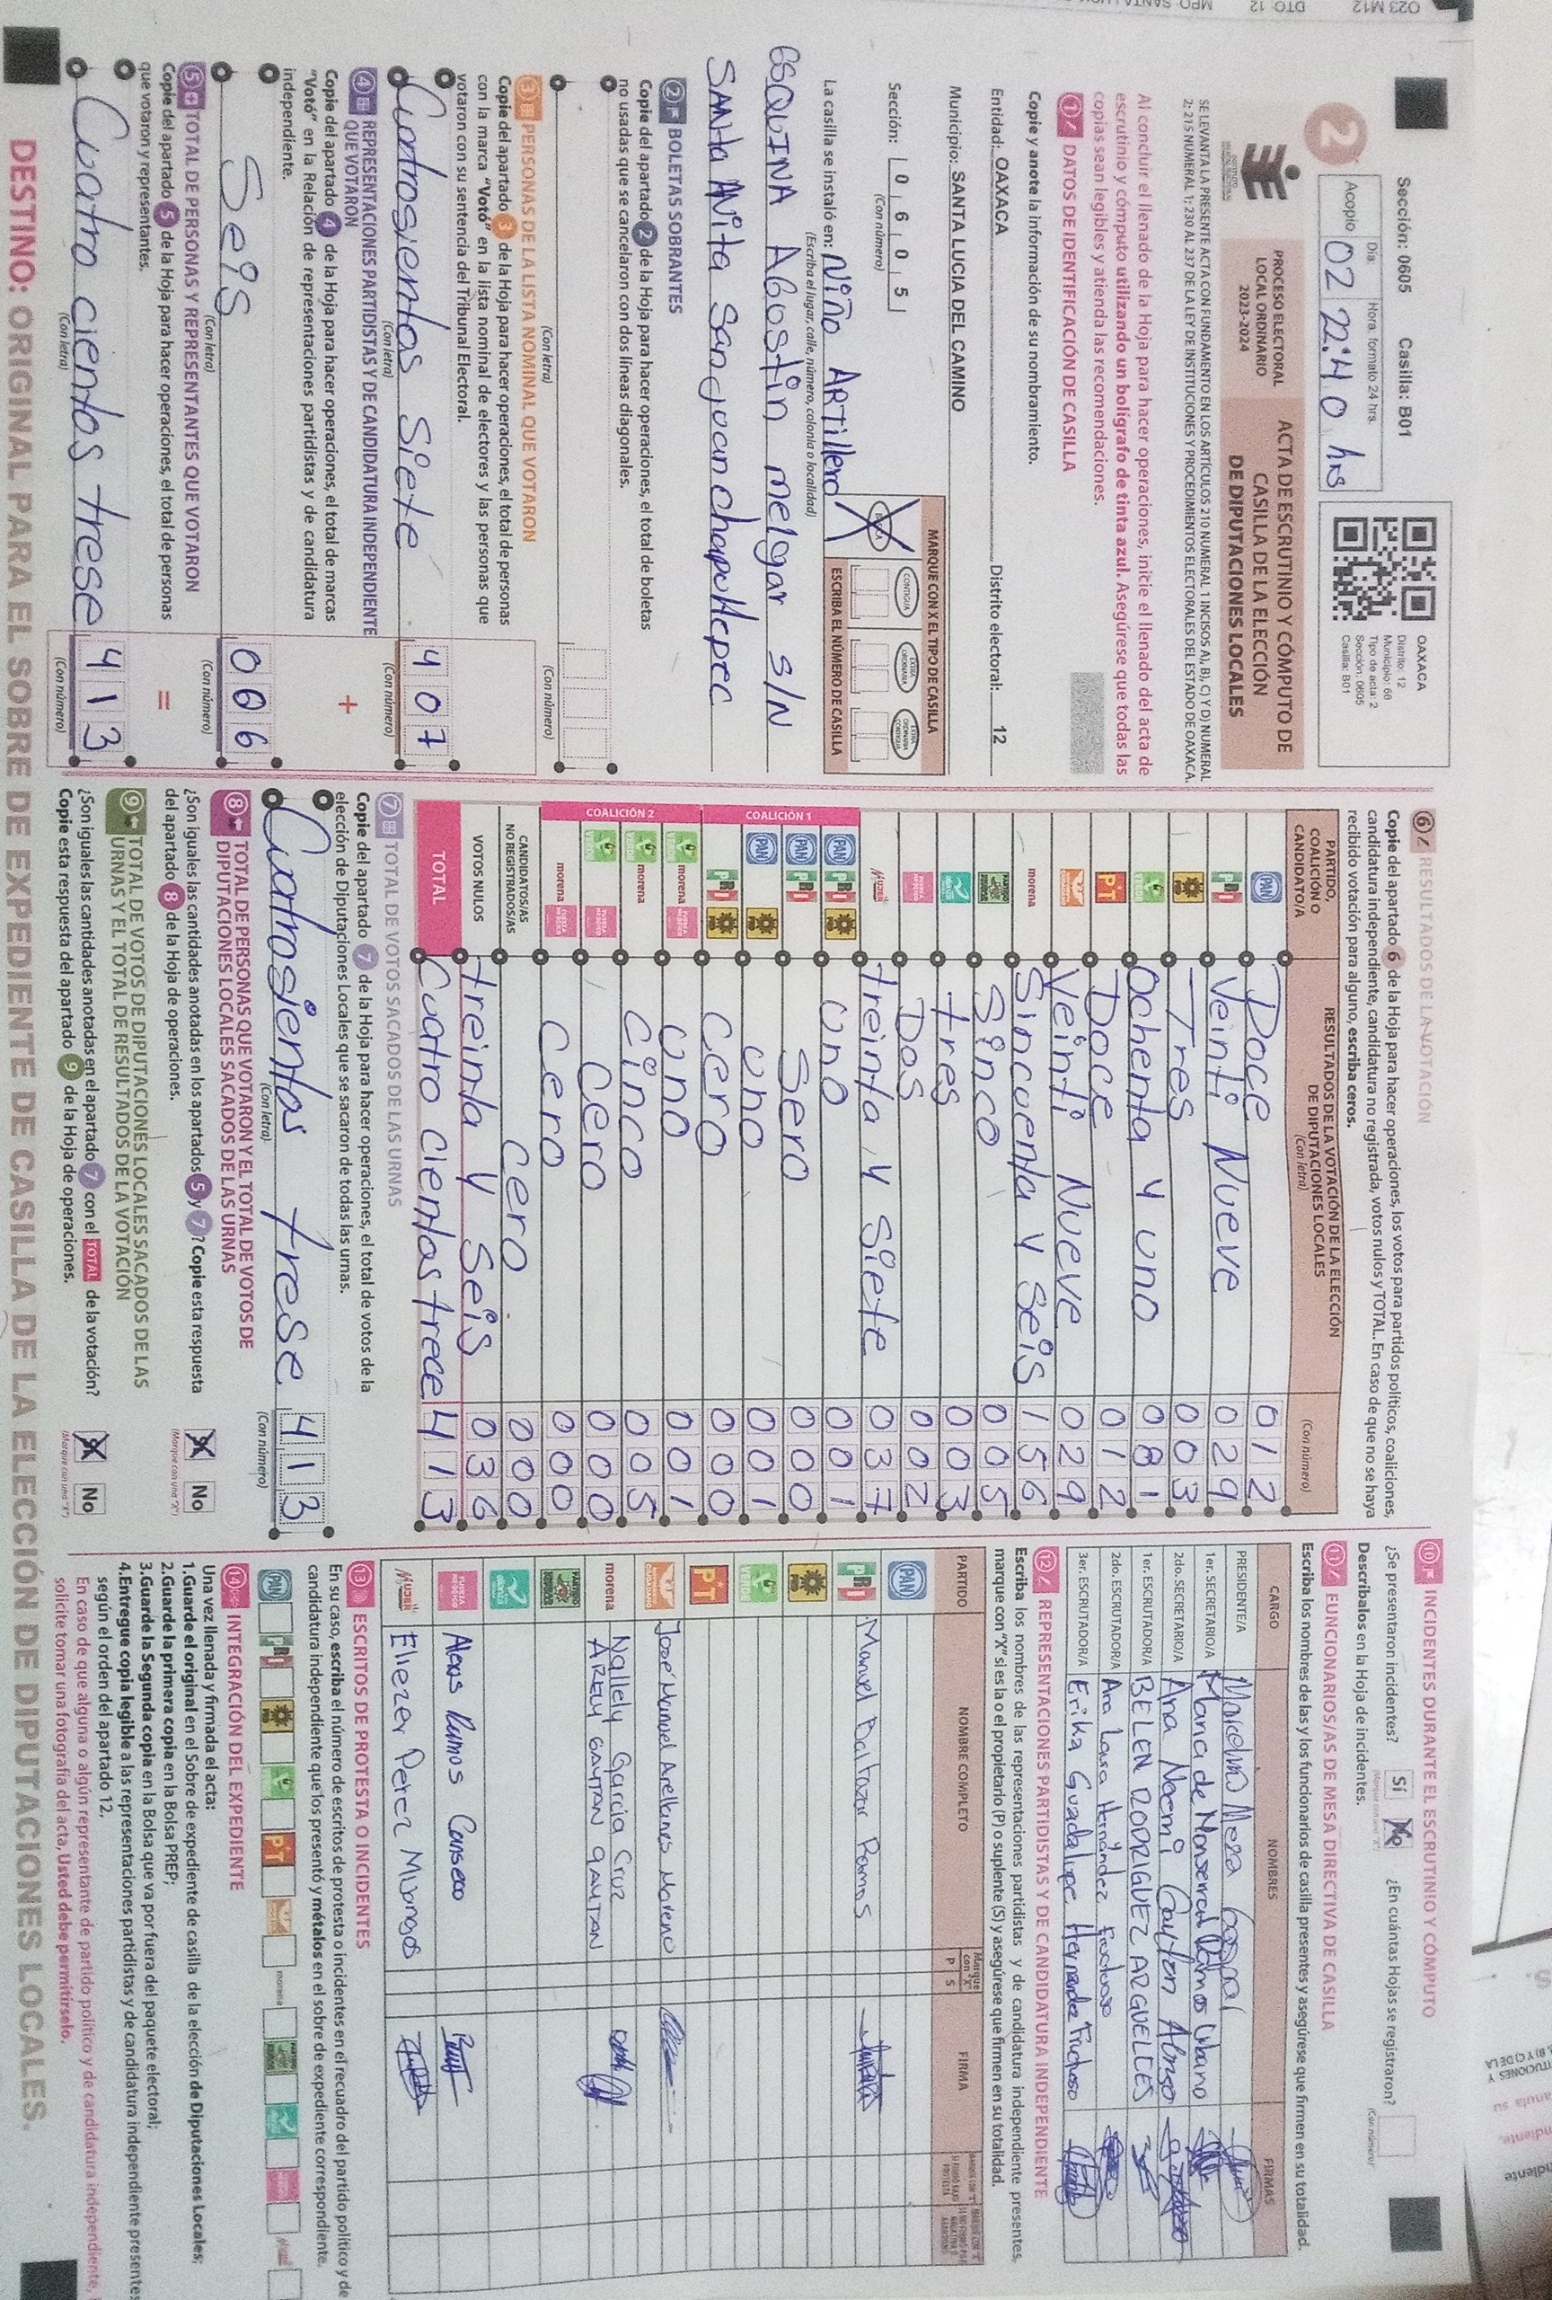 Sección: 0605 Casilla: B01
2
Acopio
Día. Hora. formato 24 hrs.
02 22:40 hrs
OAXACA
Distrito: 12
Municipio: 60
Tipo de acta: 2
Sección: 0605
Casilla: B01
PROCESO ELECTORAL
LOCAL ORDINARIO
2023-2024
ACTA DE ESCRUTINIO Y CÓMPUTO DE
CASILLA DE LA ELECCIÓN
DE DIPUTACIONES LOCALES
SE LEVANTA LA PRESENTE ACTA CON FUNDAMENTO EN LOS ARTÍCULOS 210 NUMERAL 1 INCISOS A), B), C) Y D) NUMERAL
2; 215 NUMERAL 1; 230 AL 237 DE LA LEY DE INSTITUCIONES Y PROCEDIMIENTOS ELECTORALES DEL ESTADO DE OAXACA.
Al concluir el llenado de la Hoja para hacer operaciones, inicie el llenado del acta de
escrutinio y cómputo utilizando un bolígrafo de tinta azul. Asegúrese que todas las
copias sean legibles y atienda las recomendaciones.
1 DATOS DE IDENTIFICACIÓN DE CASILLA
Copie y anote la información de su nombramiento.
Entidad: OAXACA Distrito electoral: 12
Municipio: SANTA LUCIA DEL CAMINO
Sección: 0 6 0 5
(Con número)
MARQUE CON X EL TIPO DE CASILLA
CONTIGUA
ESCRIBA EL NÚMERO DE CASILLA
La casilla se instaló en: Niño ARTillero
(Escriba el lugar, calle, número, colonia o localidad)
ESQUINA AGostin melgar S/N
SANta ANita San juan chapultepec
2 BOLETAS SOBRANTES
Copie del apartado 2 de la Hoja para hacer operaciones, el total de boletas
no usadas que se cancelaron con dos líneas diagonales.
(Con letra) (Con número)
3 PERSONAS DE LA LISTA NOMINAL QUE VOTARON
Copie del apartado 3 de la Hoja para hacer operaciones, el total de personas
con la marca “Votó” en la lista nominal de electores y las personas que
votaron con su sentencia del Tribunal Electoral.
Cuatrosientos Siete 407
(Con letra) (Con número)
4 REPRESENTACIONES PARTIDISTAS Y DE CANDIDATURA INDEPENDIENTE
QUE VOTARON
Copie del apartado 4 de la Hoja para hacer operaciones, el total de marcas
“Votó” en la Relación de representaciones partidistas y de candidatura
independiente.
+
Seis 006
(Con letra) (Con número)
5 TOTAL DE PERSONAS Y REPRESENTANTES QUE VOTARON
Copie del apartado 5 de la Hoja para hacer operaciones, el total de personas
que votaron y representantes.
=
Cuatro cientos trese 413
(Con letra) (Con número)
6 RESULTADOS DE LA VOTACIÓN
Copie del apartado 6 de la Hoja para hacer operaciones, los votos para partidos políticos, coaliciones,
candidatura independiente, candidatura no registrada, votos nulos y TOTAL. En caso de que no se haya
recibido votación para alguno, escriba ceros.
PARTIDO,
COALICIÓN O
CANDIDATO/A
RESULTADOS DE LA VOTACIÓN DE LA ELECCIÓN
DE DIPUTACIONES LOCALES
(Con letra)
(Con número)
PAN Doce 012
PRI Veinti Nueve 029
PRD Tres 003
VERDE Ochenta y uno 081
PT Doce 012
Veinti Nueve 029
morena Sincuenta y Seis 156
Sinco 005
tres 003
Dos 002
MUJER treinta y Siete 037
COALICIÓN 1
PAN PRI PRD uno 001
PAN PRI Sero 000
PAN PRD uno 001
PRI PRD Cero 000
COALICIÓN 2
VERDE morena uno 001
VERDE morena Cinco 005
VERDE Cero 000
morena Cero 000
CANDIDATOS/AS
NO REGISTRADOS/AS
Cero 000
VOTOS NULOS treinta y Seis 036
TOTAL Cuatro cientos trece 413
7 TOTAL DE VOTOS SACADOS DE LAS URNAS
Copie del apartado 7 de la Hoja para hacer operaciones, el total de votos de la
elección de Diputaciones Locales que se sacaron de todas las urnas.
Cuatrosientos trese 413
(Con letra) (Con número)
8 TOTAL DE PERSONAS QUE VOTARON Y EL TOTAL DE VOTOS DE
DIPUTACIONES LOCALES SACADOS DE LAS URNAS
¿Son iguales las cantidades anotadas en los apartados 5 y 7? Copie esta respuesta
del apartado 8 de la Hoja de operaciones.
No
(Marque con una “X”)
9 TOTAL DE VOTOS DE DIPUTACIONES LOCALES SACADOS DE LAS
URNAS Y EL TOTAL DE RESULTADOS DE LA VOTACIÓN
¿Son iguales las cantidades anotadas en el apartado 7 con el TOTAL de la votación?
Copie esta respuesta del apartado 9 de la Hoja de operaciones.
No
(Marque con una “X”)
10 INCIDENTES DURANTE EL ESCRUTINIO Y CÓMPUTO
¿Se presentaron incidentes? Sí No ¿En cuántas Hojas se registraron?
(Marque con una “X”) (Con número)
Descríbalos en la Hoja de incidentes.
11 FUNCIONARIOS/AS DE MESA DIRECTIVA DE CASILLA
Escriba los nombres de las y los funcionarios de casilla presentes y asegúrese que firmen en su totalidad.
CARGO NOMBRES FIRMAS
PRESIDENTE/A
1er. SECRETARIO/A Maria de Monserrat Ramos Urbano
2do. SECRETARIO/A Ana Noemi Gayton Alonso
1er. ESCRUTADOR/A BELEN RODRIGUEZ ARGUELLES
2do. ESCRUTADOR/A Ana Laura Hernández Fructuoso
3er. ESCRUTADOR/A Erika Guadalupe Hernandez Fructuoso
12 REPRESENTACIONES PARTIDISTAS Y DE CANDIDATURA INDEPENDIENTE
Escriba los nombres de las representaciones partidistas y de candidatura independiente presentes,
marque con “X” si es la o el propietario (P) o suplente (S) y asegúrese que firmen en su totalidad.
PARTIDO NOMBRE COMPLETO Marque con “X” P S FIRMA
PAN
PRI Manuel Baltazar Ramos
PRD
VERDE
PT
José Manuel Arellanes Moreno
morena Nallely Garcia Cruz
ARELY GAYTAN GAYTAN
Alexis Ramos Canseco
MUJER Eliezer Perez Mijangos
13 ESCRITOS DE PROTESTA O INCIDENTES
En su caso, escriba el número de escritos de protesta o incidentes en el recuadro del partido político y de
candidatura independiente que los presentó y métalos en el sobre de expediente correspondiente.
PAN PRI PRD VERDE PT morena
14 INTEGRACIÓN DEL EXPEDIENTE
Una vez llenada y firmada el acta:
1.Guarde el original en el Sobre de expediente de casilla de la elección de Diputaciones Locales;
2.Guarde la primera copia en la Bolsa PREP;
3.Guarde la Segunda copia en la Bolsa que va por fuera del paquete electoral;
4.Entregue copia legible a las representaciones partidistas y de candidatura independiente presentes
según el orden del apartado 12.
En caso de que alguna o algún representante de partido político y de candidatura independiente,
solicite tomar una fotografía del acta, Usted debe permitírselo.
DESTINO: ORIGINAL PARA EL SOBRE DE EXPEDIENTE DE CASILLA DE LA ELECCIÓN DE DIPUTACIONES LOCALES.